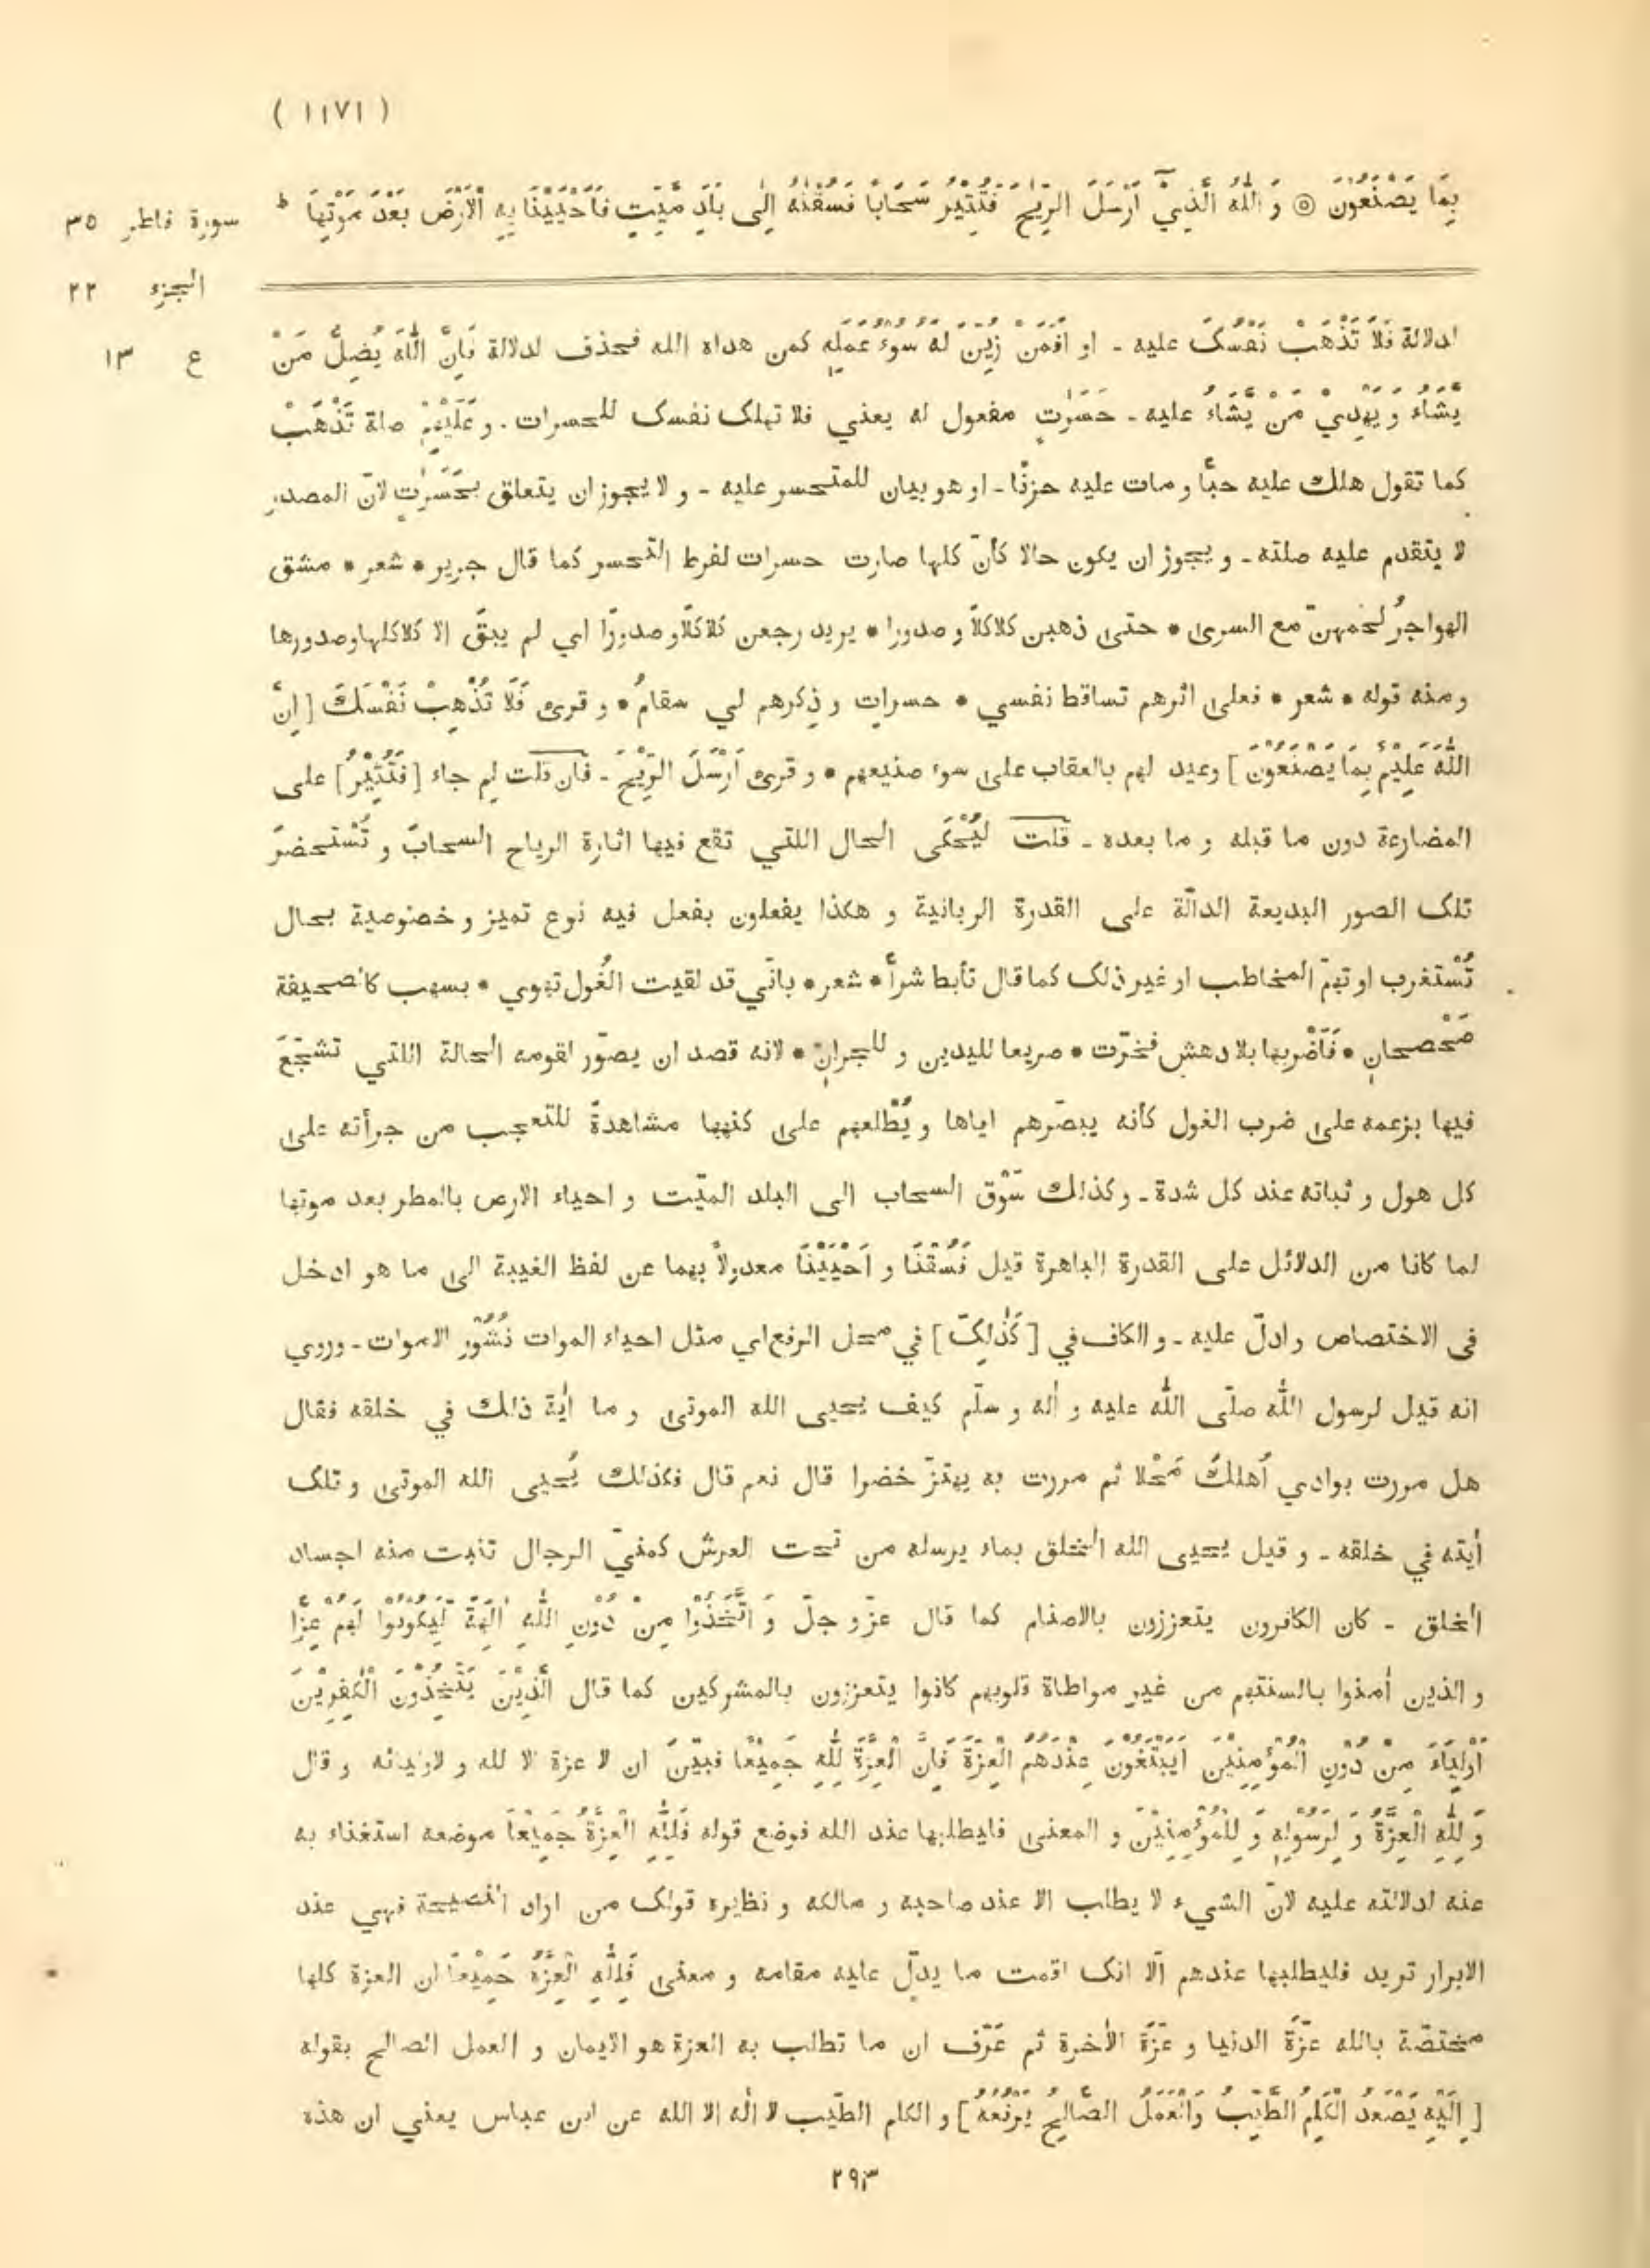 ( ١١٧١ )
بِمَا يَصْنَعُوْنَ ۞ وَ اللّٰهُ الَّذِيْٓ اَرْسَلَ الرِّيٰحَ فَتُثِيْرُ سَحَابًا فَسُقْنٰهُ اِلٰى بَلَدٍ مَّيِّتٍ فَاَحْيَيْنَا بِهِ الْاَرْضَ بَعْدَ مَوْتِهَا ط
سورة فاطر ٣٥
الجزء ٢٢
ع ١٣
لدلالة فَلَا تَذْهَبْ نَفْسُکَ عليه ـ او اَفَمَنْ زُيِّنَ لَهُ سُوءُ عَمَلِهٖ كمن هداه الله فحذف لدلالة فَاِنَّ اللّٰهَ يُضِلُّ مَنْ
يَّشَاءُ وَ يَهْدِيْ مَنْ يَّشَاءُ عليه ـ حَسَرٰتٍ مفعول له يعني فلا تهلک نفسک للحسرات . و عَلَيْهِمْ صلة تَذْهَبْ
كما تقول هلك عليه حبًّا و مات عليه حزنًا ـ او هو بيان للمتحسر عليه ـ و لا يجوز ان يتعلق بحَسَرٰتٍ لانّ المصدر
لا يتقدم عليه صلته ـ و يجوز ان يكون حالا كأنّ كلها صارت حسرات لفرط التحسر كما قال جرير * شعر * مشق
الهواجرُ لحمَهنّ مع السرى * حتى ذهبن كلاكلًا و صدورا * يريد رجعن كلاكلًا و صدورًا اي لم يبقَ الا كلاكلها وصدورها
ومنه قوله * شعر * فعلى اثرهم تساقط نفسي * حسراتٍ و ذِكرهم لي سقامُ * و قرئ فَلَا تُذْهِبْ نَفْسَكَ [ اِنَّ
اللّٰهَ عَلِيْمٌ بِمَا يَصْنَعُوْنَ ] وعيد لهم بالعقاب على سوء صنيعهم * و قرئ اَرْسَلَ الرِّيْحَ ـ فان قلت لم جاء [ فَتُثِيْرُ ] على
المضارعة دون ما قبله و ما بعده ـ قلت ليُحْكَى الحال اللتي تقع فيها اثارة الرياح السحابَ و تُسْتحضرَ
تلک الصور البديعة الدالّة على القدرة الربانية و هكذا يفعلون بفعل فيه نوع تميز و خصوصية بحال
تُسْتغرب او تهمّ المخاطب او غير ذلک كما قال تأبط شرأً * شعر * بانّي قد لقيت الغُول تهوي * بسهب كالصحيفة
صَحْصحانِ * فَاَضْربها بلا دهشٍ فخرّت * صريعا لليدين و للجرانِ * لانه قصد ان يصوّر لقومه الحالة اللتي تشجّعَ
فيها بزعمه على ضرب الغول كأنه يبصّرهم اياها و يُطْلعهم على كنهها مشاهدةً للتعجب من جرأته على
كل هول و ثباته عند كل شدة ـ وكذلك سَوْق السحاب الى البلد الميّت و احياء الارض بالمطر بعد موتها
لما كانا من الدلائل على القدرة الباهرة قيل فَسُقْنَا و اَحْيَيْنَا معدولاً بهما عن لفظ الغيبة الى ما هو ادخل
فى الاختصاص و ادلّ عليه ـ و الكاف في [ كَذٰلِکَ ] في محل الرفع اي مثل احياء الموات نُشُوْر الاموات ـ وروي
انه قيل لرسول اللّٰه صلّى اللّٰه عليه و أله و سلّم كيف يحيى الله الموتى و ما أية ذلك في خلقه فقال
هل مررت بوادي اُهلكَ مَحْلا ثم مررت به يهتزّ خضرا قال نعم قال فكذلك يُحيى الله الموتى و تلک
أيته في خلقه ـ و قيل يحيى الله الخلق بماء يرسله من تحت العرش كمنيّ الرجال تنبت منه اجساد
الخلق ـ كان الكافرون يتعززون بالاصنام كما قال عزّ و جلّ وَ اتَّخَذُوْا مِنْ دُوْنِ اللّٰهِ اٰلِهَةً لِّيَكُوْنُوْا لَهُمْ عِزًّا
و الذين أمنوا بالسنتهم من غير مواطاة قلوبهم كانوا يتعززون بالمشركين كما قال الَّذِيْنَ يَتَّخِذُوْنَ الْكٰفِرِيْنَ
اَوْلِيَاءَ مِنْ دُوْنِ الْمُؤْمِنِيْنَ اَيَبْتَغُوْنَ عِنْدَهُمُ الْعِزَّةَ فَاِنَّ الْعِزَّةَ لِلّٰهِ جَمِيْعًا فبيّن ان لا عزة الا لله و لاوليائه و قال
وَ لِلّٰهِ الْعِزَّةُ وَ لِرَسُوْلِهٖ وَ لِلْمُؤْمِنِيْنَ و المعنى فليطلبها عند الله فوضع قوله فَلِلّٰهِ الْعِزَّةُ جَمِيْعًا موضعه استغناء به
عنه لدلالته عليه لانّ الشيء لا يطلب الا عند صاحبه و مالكه و نظيره قولک من اراد النصيحة فهي عند
الابرار تريد فليطلبها عندهم الّا انک اقمت ما يدلّ عليه مقامه و معنى فَلِلّٰهِ الْعِزَّةُ جَمِيْعًا ان العزة كلها
مختصّة بالله عزّةَ الدنيا و عزّةَ الأخرة ثم عَرّف ان ما تطلب به العزة هو الايمان و العمل الصالح بقوله
[ اِلَيْهِ يَصْعَدُ الْكَلِمُ الطَّيِّبُ وَالْعَمَلُ الصَّالِحُ يَرْفَعُهُ ] و الكلم الطيّب لا اله الا الله عن ابن عباس يعني ان هذه
٢٩٣